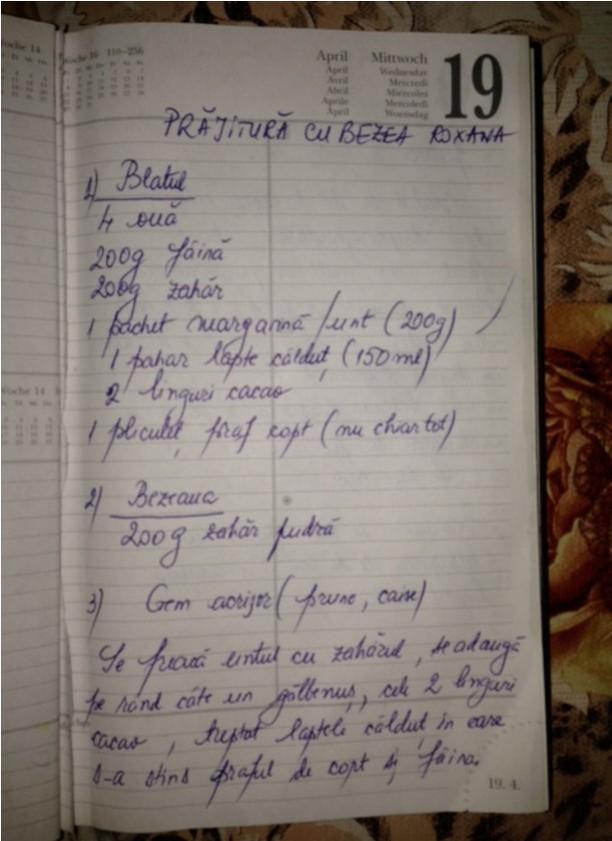 Woche 14
Woche 16 110–256
April Mittwoch
April Wednesday
Avril Mercredi
Abril Miércoles
Aprile Mercoledì
April Woensdag
19
PRĂJITURĂ CU BEZEA ROXANA
1) Blatul
4 ouă
200g făină
200g zahăr
1 pachet margarină / unt (200g)
1 pahar lapte călduț (150 ml)
2 linguri cacao
1 pliculeț praf copt (nu chiar tot)
2) Bezeaua
200g zahăr pudră
Woche 14
3) Gem acrișor (prune, caise)
Se freacă untul cu zahărul, se adaugă
pe rând câte un gălbenuș, cele 2 linguri
cacao, treptat laptele călduț în care
s-a stins praful de copt și făina.
19. 4.